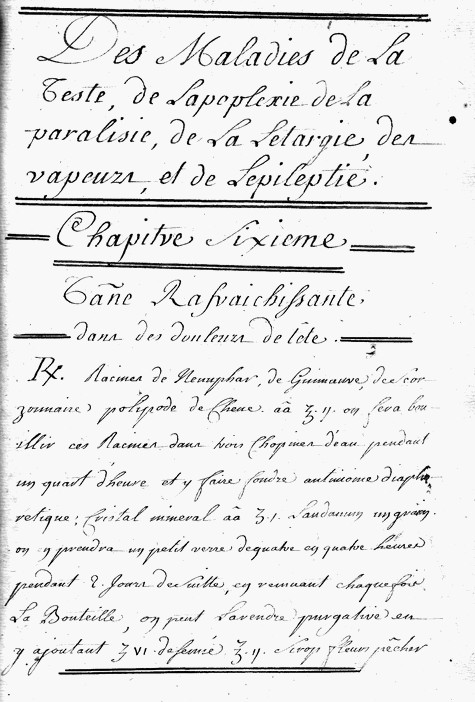 Des Maladies de La
Teste, de Lapoplexie de La
paralisie, de La Letargie, des
vapeurs, et de Lepileptié.
Chapitre Sixieme
Tāne Rafraichissante,
dans des douleurs de tête.
Rx. Racines de Nenuphar, de Guimauve, de Scor
zonnaire, polipode de Chene. āā ʒ. ıȷ. on fera bou
illir ces Racines dans trois Chopines deau pendant
un quart d'heure et y faire fondre antimoine diapho
retique; Cristal mineral āā ʒ. ı. Laudanum un grain.
on y prendra un petit verre de quatre en quatre heures
pendant 2. Jours de suitte, en remuant chaque fois
La Bouteille, on peut La rendre purgative en
y ajoutant ʒ VI. de sené ʒ. ıȷ. Sirop fleurs pêcher